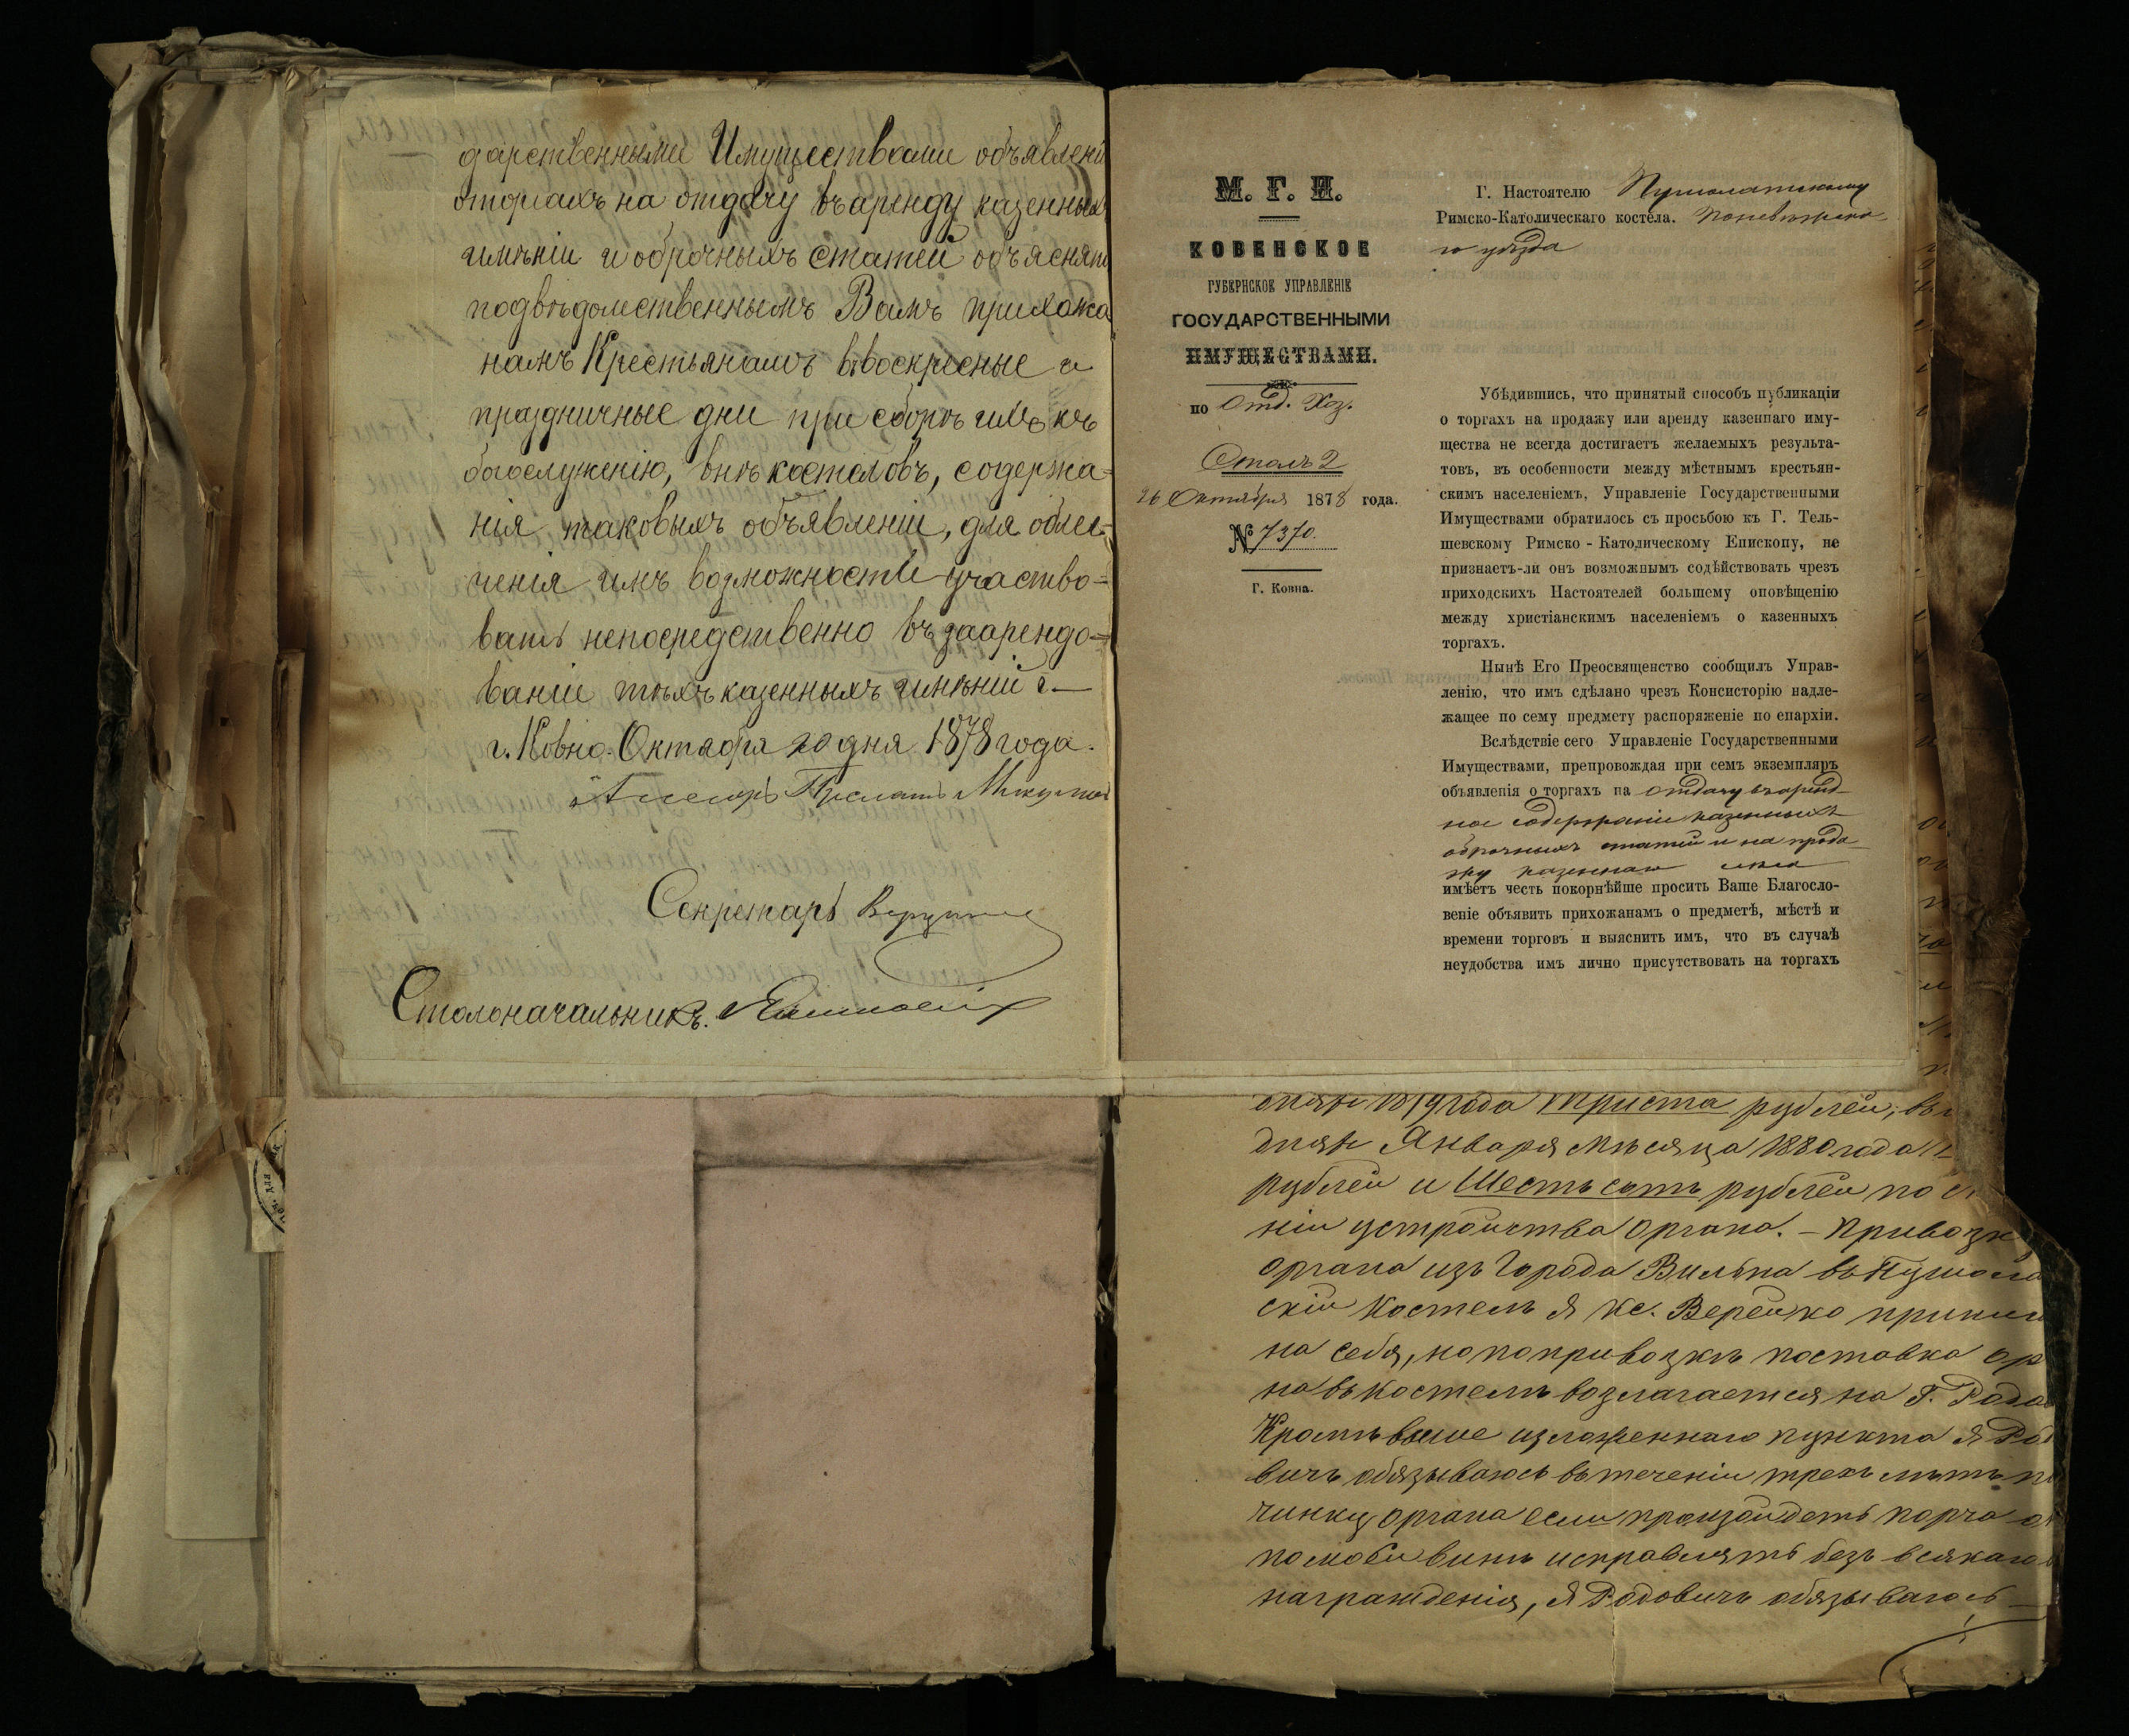 дарственными Имуществами объявлені
оторгахъ на отдачу въ аренду казенных
имѣніи и оброчныхъ статей объяснят
подвѣдомственнымъ Вамъ прихожа
намъ Крестьянамъ въ воскресные и
праздничные дни при сборѣ ихъ къ
богослуженію, внѣ костеловъ, содержа=
нія таковыхъ объявленіи, для облег-
ченія имъ возможности участво=
вать непосредственно въ заарендо=
ваніи тѣхъ казенныхъ имѣній.—
г. Ковно. Октября 20 дня 1878 года.
Ассесоръ Прелатъ
Секретарь
Столоначальникъ.
М. Г. И.
КОВЕНСКОЕ
ГУБЕРНСКОЕ УПРАВЛЕНІЕ
ГОСУДАРСТВЕННЫМИ
ИМУЩЕСТВАМИ.
по Отд. Хоз.
Столъ 2
26 Октября 1878 года.
№ 7370.
Г. Ковна.
Г. Настоятелю Пушолатскому
Римско-Католическаго костела. Поневѣжска-
го уѣзда
Убѣдившись, что принятый способъ публикаціи
о торгахъ на продажу или аренду казеннаго иму-
щества не всегда достигаетъ желаемыхъ результа-
товъ, въ особенности между мѣстнымъ крестьян-
скимъ населеніемъ, Управленіе Государственными
Имуществами обратилось съ просьбою къ Г. Тель-
шевскому Римско - Католическому Епископу, не
признаетъ-ли онъ возможнымъ содѣйствовать чрезъ
приходскихъ Настоятелей большему оповѣщенію
между христіанскимъ населеніемъ о казенныхъ
торгахъ.
Нынѣ Его Преосвященство сообщилъ Управ-
ленію, что имъ сдѣлано чрезъ Консисторію надле-
жащее по сему предмету распоряженіе по епархіи.
Вслѣдствіе сего Управленіе Государственными
Имуществами, препровождая при семъ экземпляръ
объявленія о торгахъ на отдачу въ аренд-
ное содержаніе казенныхъ
оброчныхъ статей и на прода-
жу казеннаго лѣса
имѣетъ честь покорнѣйше просить Ваше Благосло-
веніе объявить прихожанамъ о предметѣ, мѣстѣ и
времени торговъ и выяснить имъ, что въ случаѣ
неудобства имъ лично присутствовать на торгахъ
1879 года триста рублей, въ
дняхъ Января мѣсяца 1880 года
рублей и Шестьсотъ рублей по
ніи устройства органа. – Привозку
органа изъ Города Вильна въ Пушола
скій Костелъ я Кс. Верейко прини
на себя, но по привозкѣ поставка ор
на въ Костелъ возлагается на Г. Радо
Кромѣ выше изложеннаго пункта я Рад
вичъ обязываюсь въ теченіи трехъ лѣтъ по
чинку органа если произойдетъ порча
по моей винѣ исправлять безъ всякаго
награжденія, я Радовичъ обязываюсь